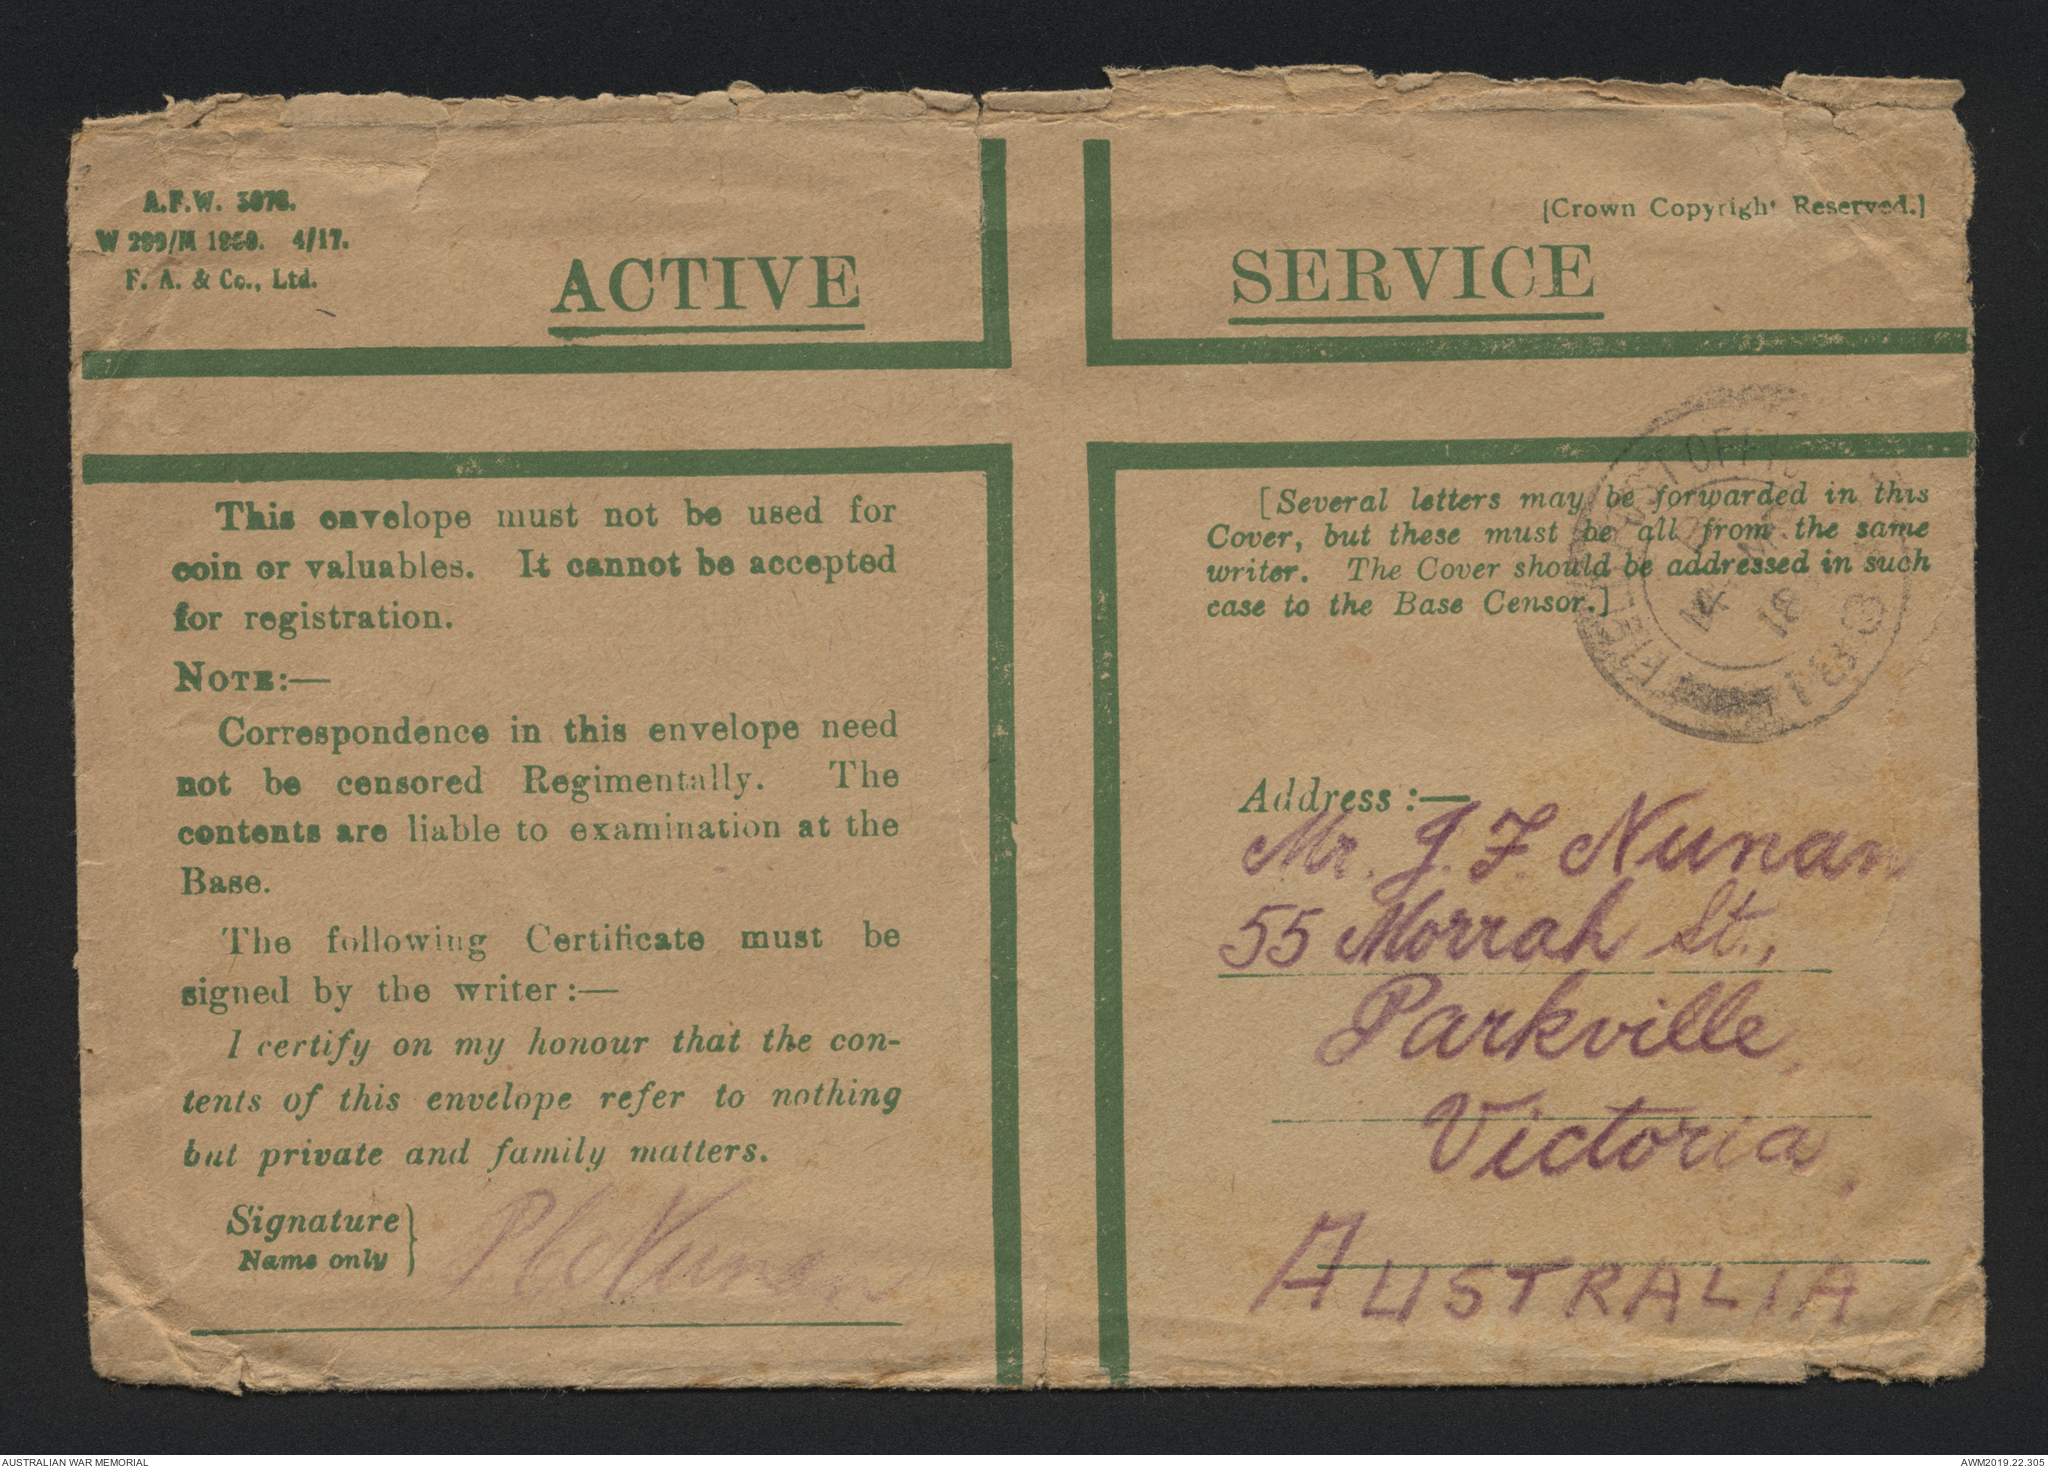 A.F.W. 3078.
W 299/M 1253. 4/17.
F. A. & Co., Ltd.
[Crown Copyright Reserved.]
ACTIVE SERVICE
This envelope must not be used for
coin or valuables. It cannot be accepted
for registration.
NOTE:—
Correspondence in this envelope need
not be censored Regimentally. The
contents are liable to examination at the
Base.
The following Certificate must be
signed by the writer:—
I certify on my honour that the con-
tents of this envelope refer to nothing
but private and family matters.
Signature
Name only
Nunan
[Several letters may be forwarded in this
Cover, but these must be all from the same
writer. The Cover should be addressed in such
case to the Base Censor.]
FIELD POST OFFICE
18
Address:—
Mr. J. F. Nunan
55 Morrah St.,
Parkville,
Victoria,
AUSTRALIA
AUSTRALIAN WAR MEMORIAL
AWM2019.22.305